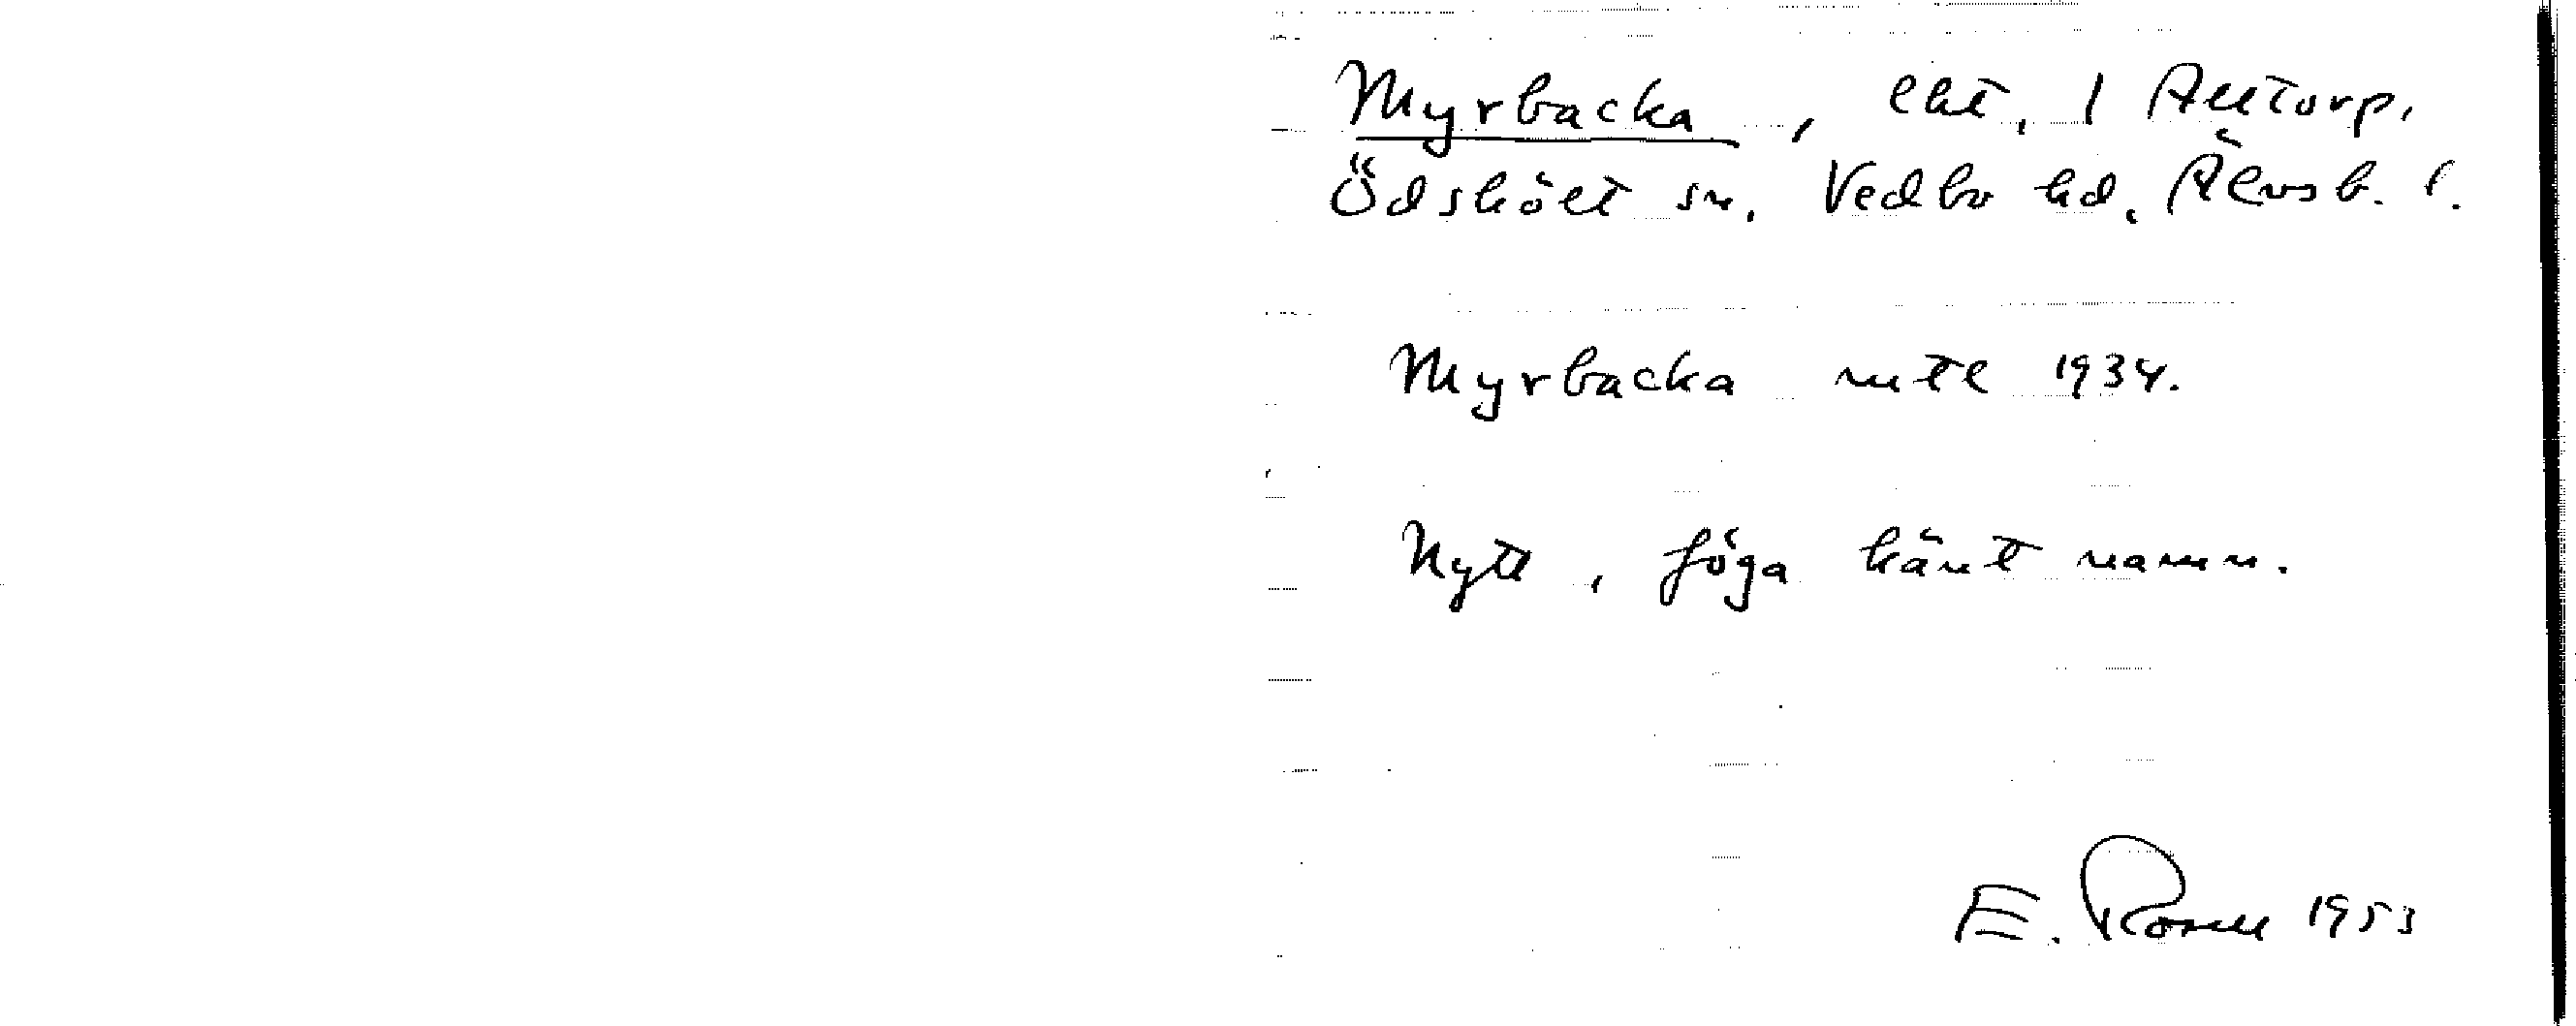 Myrbacka, lht. 1 Alltorp,
Ödskölt sn. Vedbo hd. Älvsb. l.
Myrbacka mtl 1934.
Nytt, föga känt namn.
E. Rosell 1953